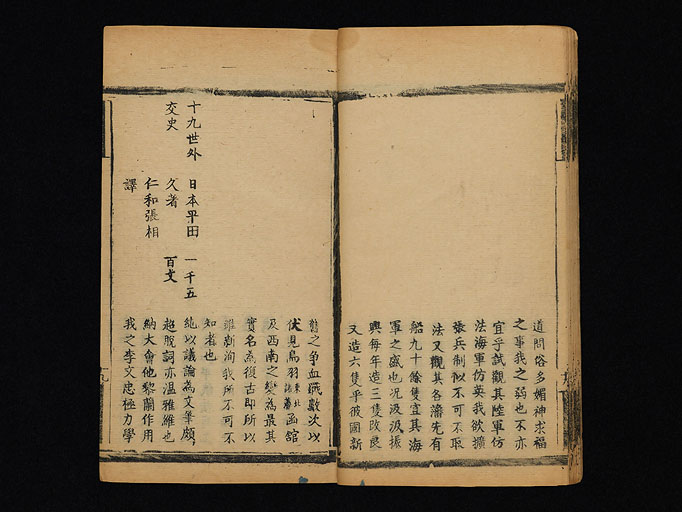 道問俗多媚神求福
之事我之弱也不亦
宜乎試觀其陸軍仿
法海軍仿英我欲擴
張兵制似不可不取
法又觀其各藩先有
船九十餘隻宜其海
軍之盛也况汲汲振
興每年造三隻改良
又造六隻乎彼國新
舊之争血戰數次以
伏見鳥羽東北諸藩函舘
及西南之變為最其
實名為復古即所以
維新洵我所不可不
知者也
十九世外
交史
日本平田
久著
仁和張相
譯
一千五
百文
純以議論為文筆頗
超脱詞亦温雅維也
納大會他黎蘭作用
我之李文忠極力學